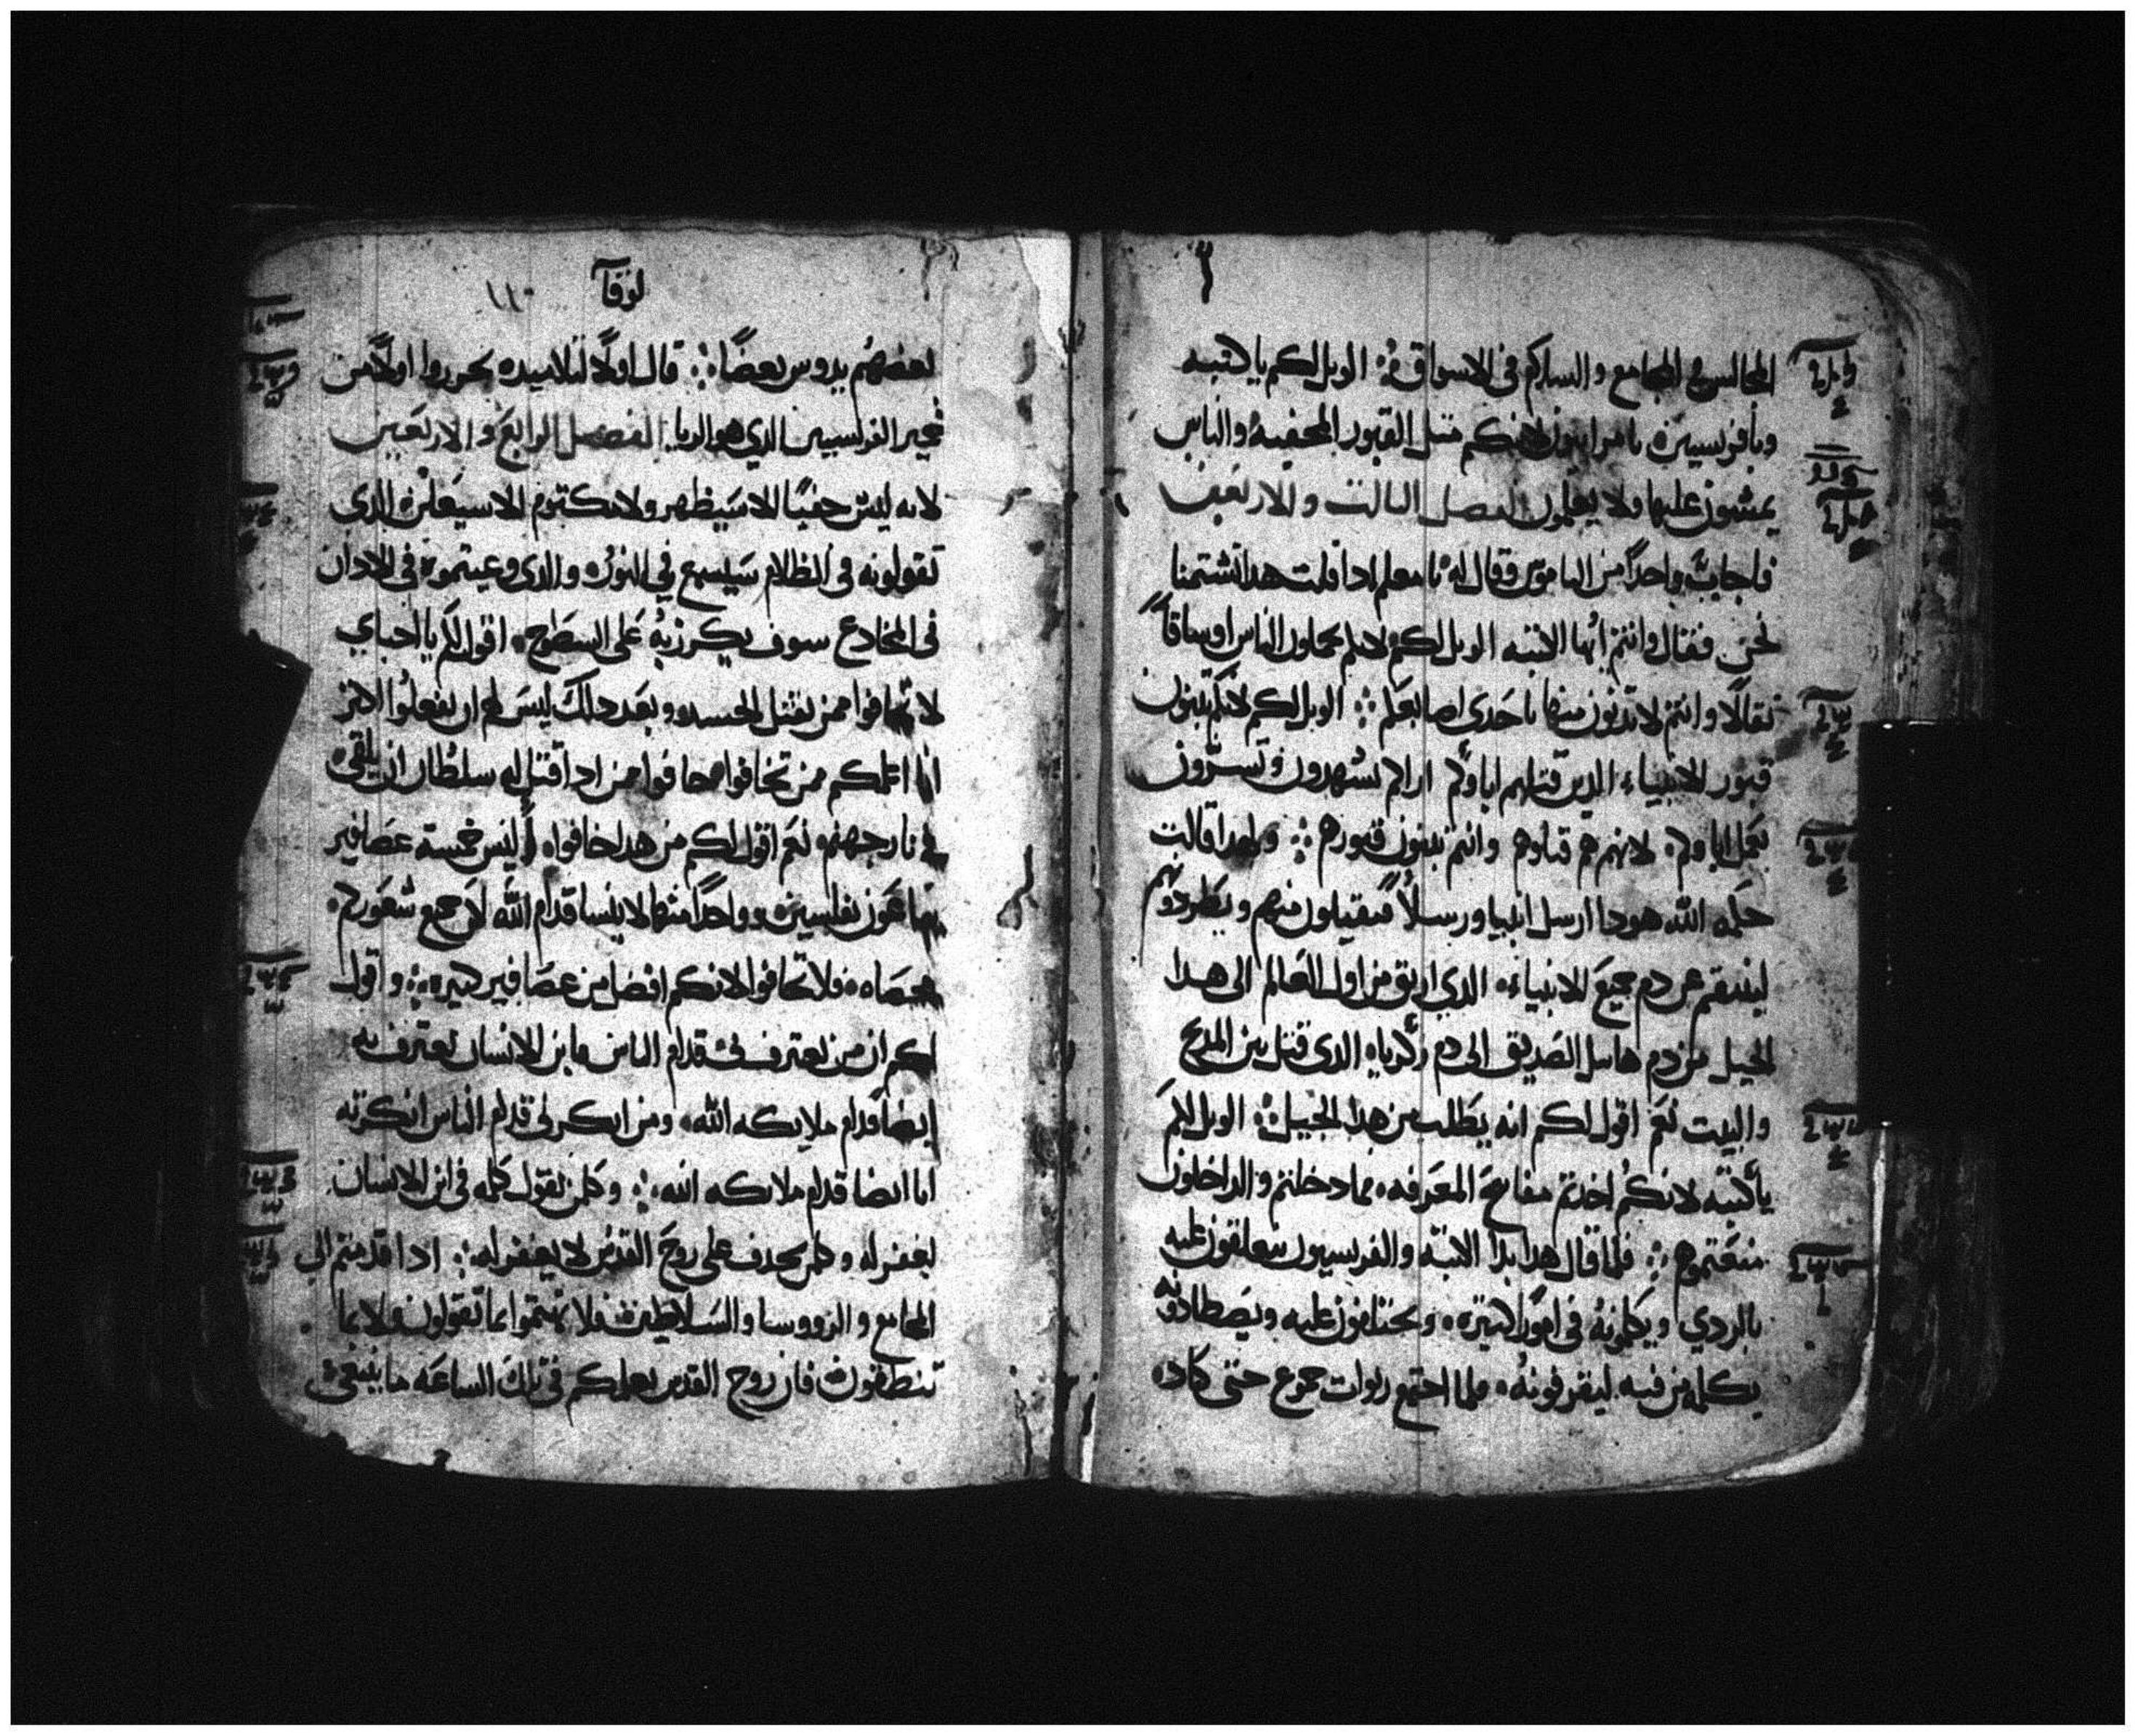 المجالس في المجامع والسلام في الاسواق الويل لكم يا كتبه
ويا فريسيين يا مرايون لانكم متل القبور المخفيه والناس
يمشون عليها ولا يعلمون الفصل التالت والاربعين
فاجابه واحداً من الناموس وقال له يا معلم ادا قلت هدا تشتمنا
نحن فقال وانتم ايها الكتبه الويل لكم لانكم تحملون الناس اوساقاً
تقالاً وانتم لا تدنون منها باحدى اصابعكم الويل لكم لانكم تبنون
قبور الانبياء الدين قتلهم اباوكم اراكم تشهدون وتسرون
بعمل اباوكم لانهم هم قتلوهم وانتم تبنون قبورهم ولهدا قالت
حكمه الله هودا ارسل انبيا ورسلاً فيقتلون منهم ويطردونهم
لينتقم عن دم جميع الانبياء الدي اريق من اول العالم الى هدا
الجيل من دم هابيل الصديق الى دم زكرياه الدى قتل بين المدبح
والبيت نعم اقول لكم انه يطلب من هدا الجيل الويل لكم
يا كتبه لانكم اخدتم مفاتيح المعرفه فما دخلتم والداخلون
منعتموهم فلما قال هدا بدا الكتبه والفريسيون يتعلقون عليه
بالردي ويكلمونه في امور كتيره ويحتالون عليه ويصطادونه
بكلمه من فيه ليقرفونه فلما اجتمع ربوات جموع حتى كاد
لوقا
١١٠
بعضهم يدوس بعضاً قال اولاً لتلاميده تحرروا اولاً من
خمير الفريسيين الدي هو الريا الفصل الرابع والاربعين
لانه ليس خفياً الا سيظهر ولا مكتوم الا سيعلن الدى
تقولونه في الظلام سيسمع في النور والدى وعيتموه في الادان
في المخادع سوف يكرز به على السطوح اقول لكم يا احباي
لا تخافوا ممن يقتل الجسد وبعد دلك ليس له ان يفعلوا اكتر
انا اعلمكم ممن تخافوا خافوا ممن ادا قتل له سلطان ان يلقى
في نار جهنم نعم اقول لكم من هدا خافوا اليس خمسة عصافير
تباعون بفلسين وواحداً منها لا ينسا قدام الله لان جميع شعوركم
محصاه فلا تخافوا لانكم افضل من عصافير كتيره واقول
لكم ان من يعترف بي قدام الناس فابن الانسان يعترف به
ايضاً قدام ملايكه الله ومن انكرني قدام الناس انكرته
انا ايضا قدام ملايكه الله وكلمن يقول كلمه في ابن الانسان
يغفر له وكلمن يجدف على روح القدس لا يغفر له ادا قدمتم الي
المجامع والرووسا والسلاطين فلا تهتموا بما تقولون ولا بما
تنطقون فان روح القدس يعلمكم في تلك الساعه ما ينبغي